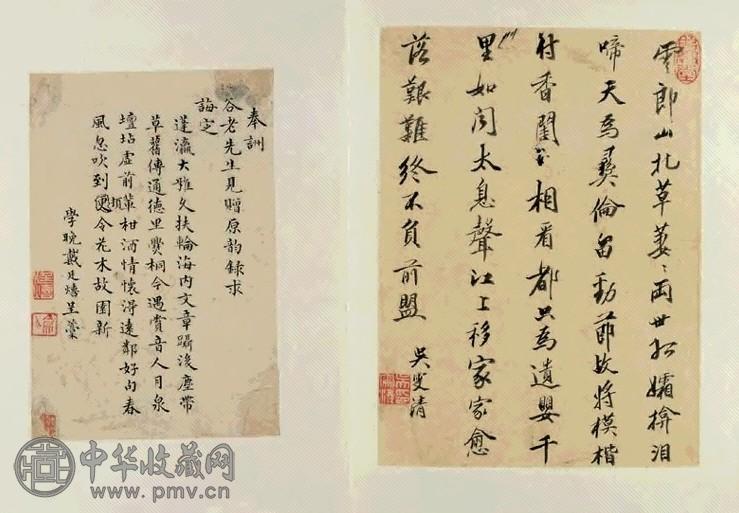 雲郎山北草萋〻兩世孤孀揜泪
啼天為彝倫留勁節故將模楷
付香閨相看都只為遺嬰千
里如聞太息聲江上移家家愈
落艱難終不負前盟
吳雯清
奉詶
谷老先生見贈原韵錄求
誨定
蓬瀛大雅久扶輪海内文章躡後塵帶
草舊傳通德里爨桐今遇賞音人月泉
壇坫虛前輩柑酒情懷得遠鄰好向春
風忽吹到令花木故園新
學晚戴廷熺呈藁
中华收藏网
www.pmv.cn